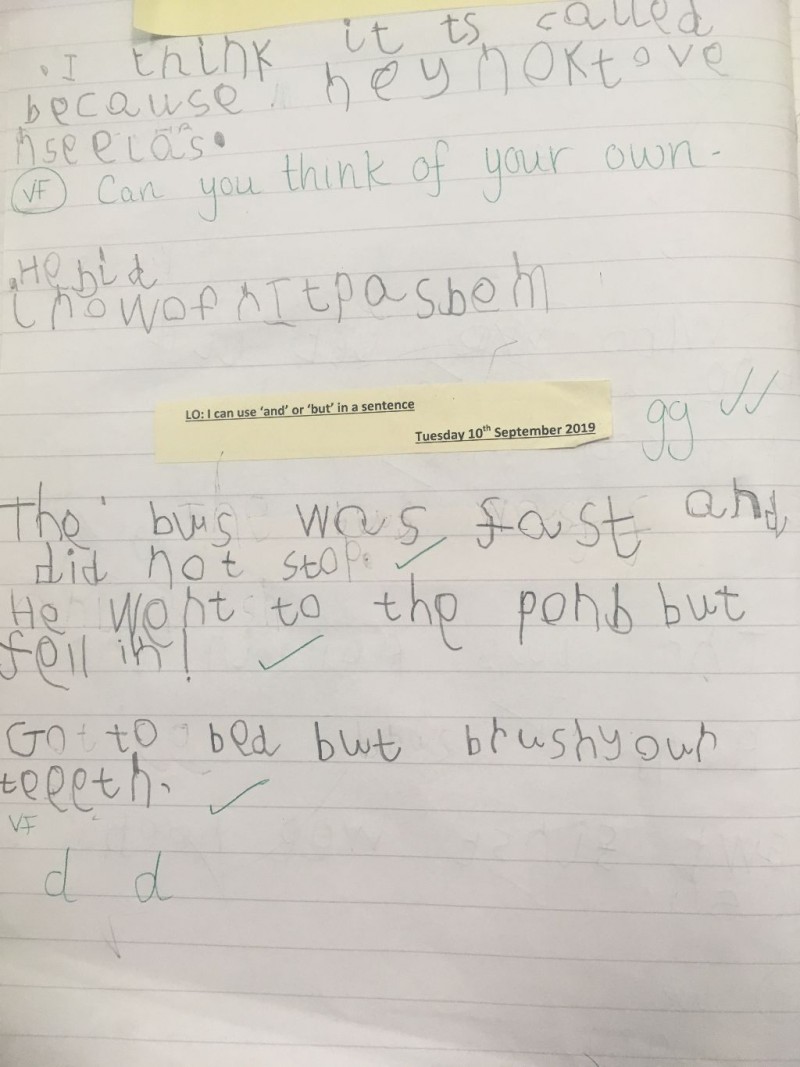 I think it is called
because heyhoktove
hseelas.
VF Can you think of your own.
He bid
LO: I can use 'and' or 'but' in a sentence
Tuesday 10th September 2019
gg
The bus was fast and
did not stop.
He went to the ponb but
fell in!
Go to bed but brushyour
teeeth.
VF
d d